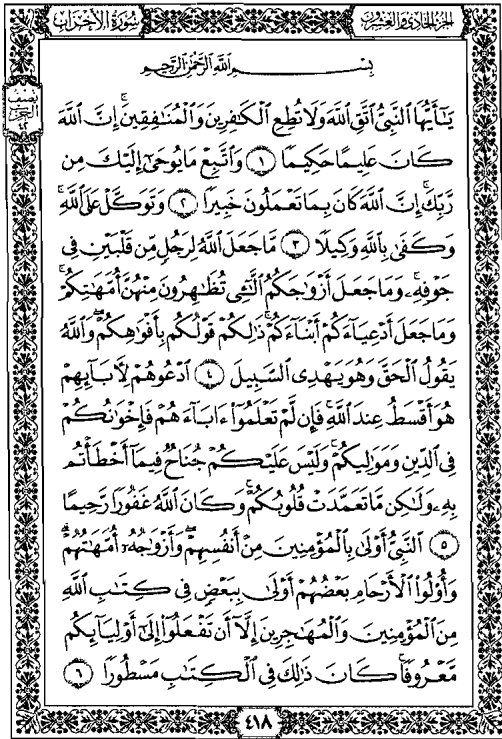 الجزء الحادي والعشرون
سورة الأحزاب
نصف
الحزب
٤٢
بِسْمِ ٱللَّهِ ٱلرَّحْمَٰنِ ٱلرَّحِيمِ
يَٰٓأَيُّهَا ٱلنَّبِيُّ ٱتَّقِ ٱللَّهَ وَلَا تُطِعِ ٱلْكَٰفِرِينَ وَٱلْمُنَٰفِقِينَ ۗ إِنَّ ٱللَّهَ
كَانَ عَلِيمًا حَكِيمًا ١ وَٱتَّبِعْ مَا يُوحَىٰٓ إِلَيْكَ مِن
رَّبِّكَ ۚ إِنَّ ٱللَّهَ كَانَ بِمَا تَعْمَلُونَ خَبِيرًا ٢ وَتَوَكَّلْ عَلَى ٱللَّهِ ۚ
وَكَفَىٰ بِٱللَّهِ وَكِيلًا ٣ مَّا جَعَلَ ٱللَّهُ لِرَجُلٍ مِّن قَلْبَيْنِ فِى
جَوْفِهِۦ ۚ وَمَا جَعَلَ أَزْوَٰجَكُمُ ٱلَّٰٓـِٔى تُظَٰهِرُونَ مِنْهُنَّ أُمَّهَٰتِكُمْ ۚ
وَمَا جَعَلَ أَدْعِيَآءَكُمْ أَبْنَآءَكُمْ ۚ ذَٰلِكُمْ قَوْلُكُم بِأَفْوَٰهِكُمْ ۖ وَٱللَّهُ
يَقُولُ ٱلْحَقَّ وَهُوَ يَهْدِى ٱلسَّبِيلَ ٤ ٱدْعُوهُمْ لِأَبَآئِهِمْ
هُوَ أَقْسَطُ عِندَ ٱللَّهِ ۚ فَإِن لَّمْ تَعْلَمُوٓا۟ ءَابَآءَهُمْ فَإِخْوَٰنُكُمْ
فِى ٱلدِّينِ وَمَوَٰلِيكُمْ ۚ وَلَيْسَ عَلَيْكُمْ جُنَاحٌ فِيمَآ أَخْطَأْتُم
بِهِۦ وَلَٰكِن مَّا تَعَمَّدَتْ قُلُوبُكُمْ ۚ وَكَانَ ٱللَّهُ غَفُورًا رَّحِيمًا
٥ ٱلنَّبِيُّ أَوْلَىٰ بِٱلْمُؤْمِنِينَ مِنْ أَنفُسِهِمْ ۖ وَأَزْوَٰجُهُۥٓ أُمَّهَٰتُهُمْ ۗ
وَأُو۟لُوا۟ ٱلْأَرْحَامِ بَعْضُهُمْ أَوْلَىٰ بِبَعْضٍ فِى كِتَٰبِ ٱللَّهِ
مِنَ ٱلْمُؤْمِنِينَ وَٱلْمُهَٰجِرِينَ إِلَّآ أَن تَفْعَلُوٓا۟ إِلَىٰٓ أَوْلِيَآئِكُم
مَّعْرُوفًا ۚ كَانَ ذَٰلِكَ فِى ٱلْكِتَٰبِ مَسْطُورًا ٦
٤١٨